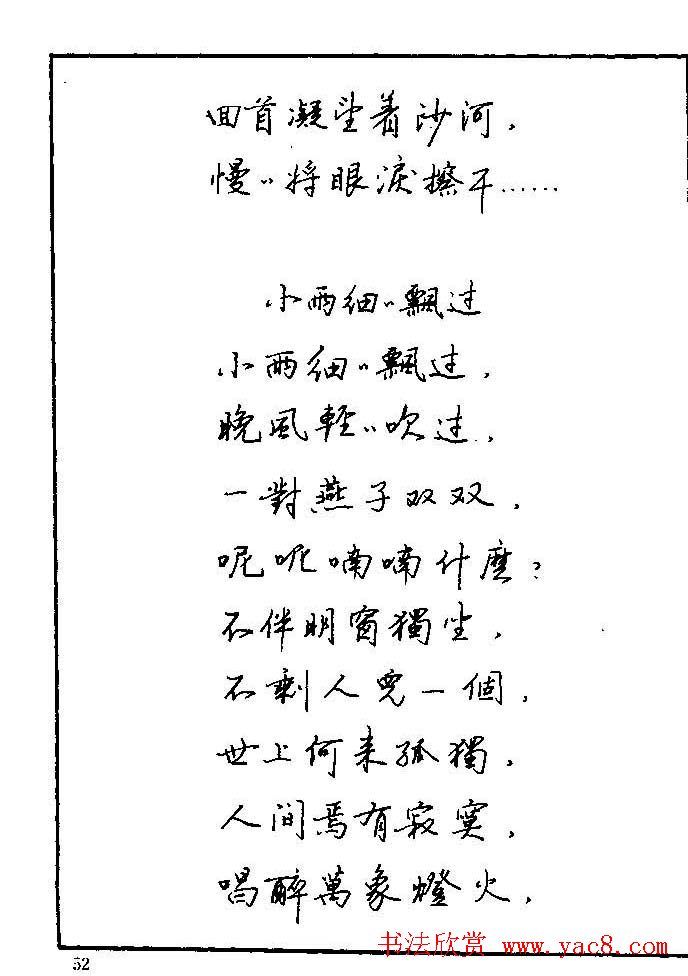 回首凝望着沙河，
慢〃将眼淚擦干……
小雨细〃飘过
小雨细〃飘过，
晚風輕〃吹过，
一對燕子双双，
呢呢喃喃什麽？
不伴明窗獨坐，
不剩人兒一個，
世上何来孤獨，
人间焉有寂寞，
唱醉萬象燈火，
52
书法欣赏 www.yac8.com